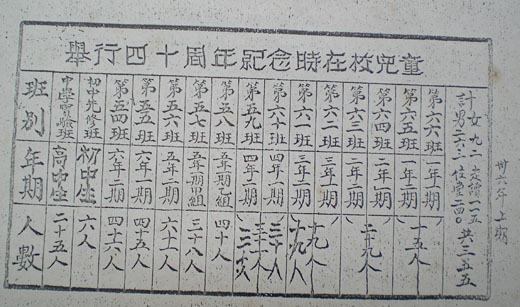 舉行四十周年紀念時在校兒童
班別 中學實驗班 初中先修班 第五四班 第五五班 第五六班 第五七班 第五八班 第五九班 第六十班 第六一班 第六二班 第六三班 第六四班 第六五班 第六六班
年期 高中生 初中生 六年二期 六年一期 五年二期 五年一期 五年一期 四年二期 四年一期 三年二期 三年一期 二年二期 二年一期 一年二期 一年上期
人數 二十五人 六人 四十六人 四十五人 六十一人 三十八人 四十人 十九人 十九人 二十九人 十五人
計女九二 交讀一一五 共三五五
男二六三 住堂二四〇
卅六年上期